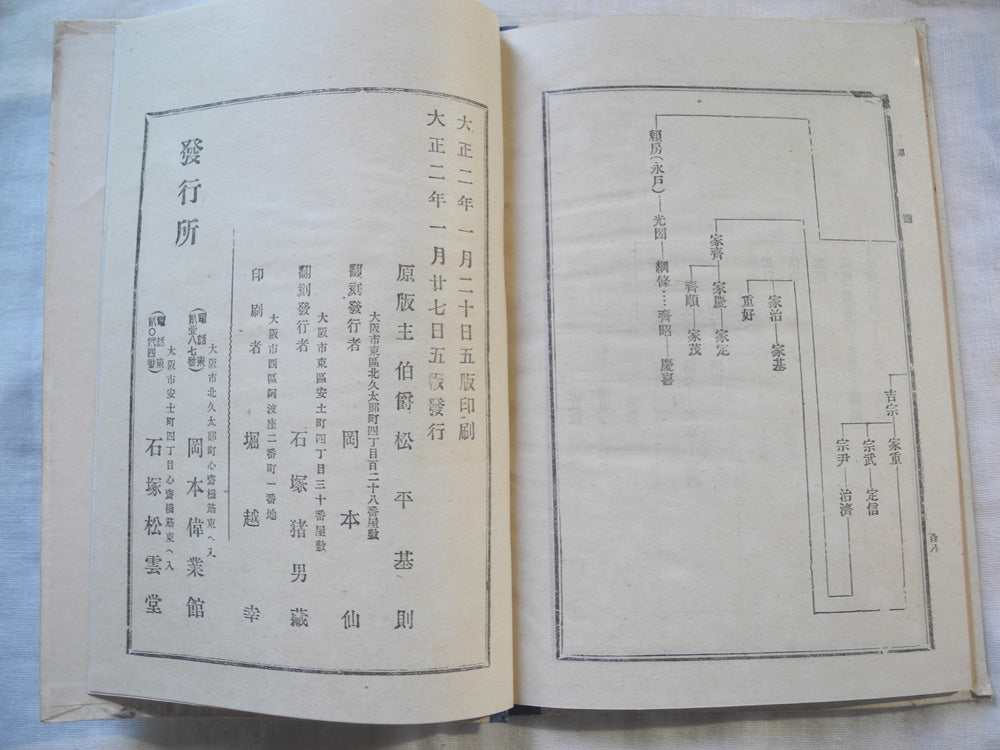 系圖
吉宗
家重
宗武―定信
宗尹―治濟
家治―家基
重好
家齊
家慶―家定
齊順―家茂
賴房(水戶)―光圀―綱條……齊昭―慶喜
大正二年一月二十日五版印刷
大正二年一月廿七日五版發行
原版主 伯爵 松平基則
大阪市東區北久太郎町四丁目百二十八番屋敷
翻刻發行者 岡本仙
大阪市東區安土町四丁目三十番屋敷
翻刻發行者 石塚猪男藏
大阪市西區阿波座二番町一番地
印刷者 堀越幸
發行所
大阪市北久太郎町心齋橋筋東ヘ入
岡本偉業館
大阪市安土町四丁目心齋橋筋東ヘ入
石塚松雲堂